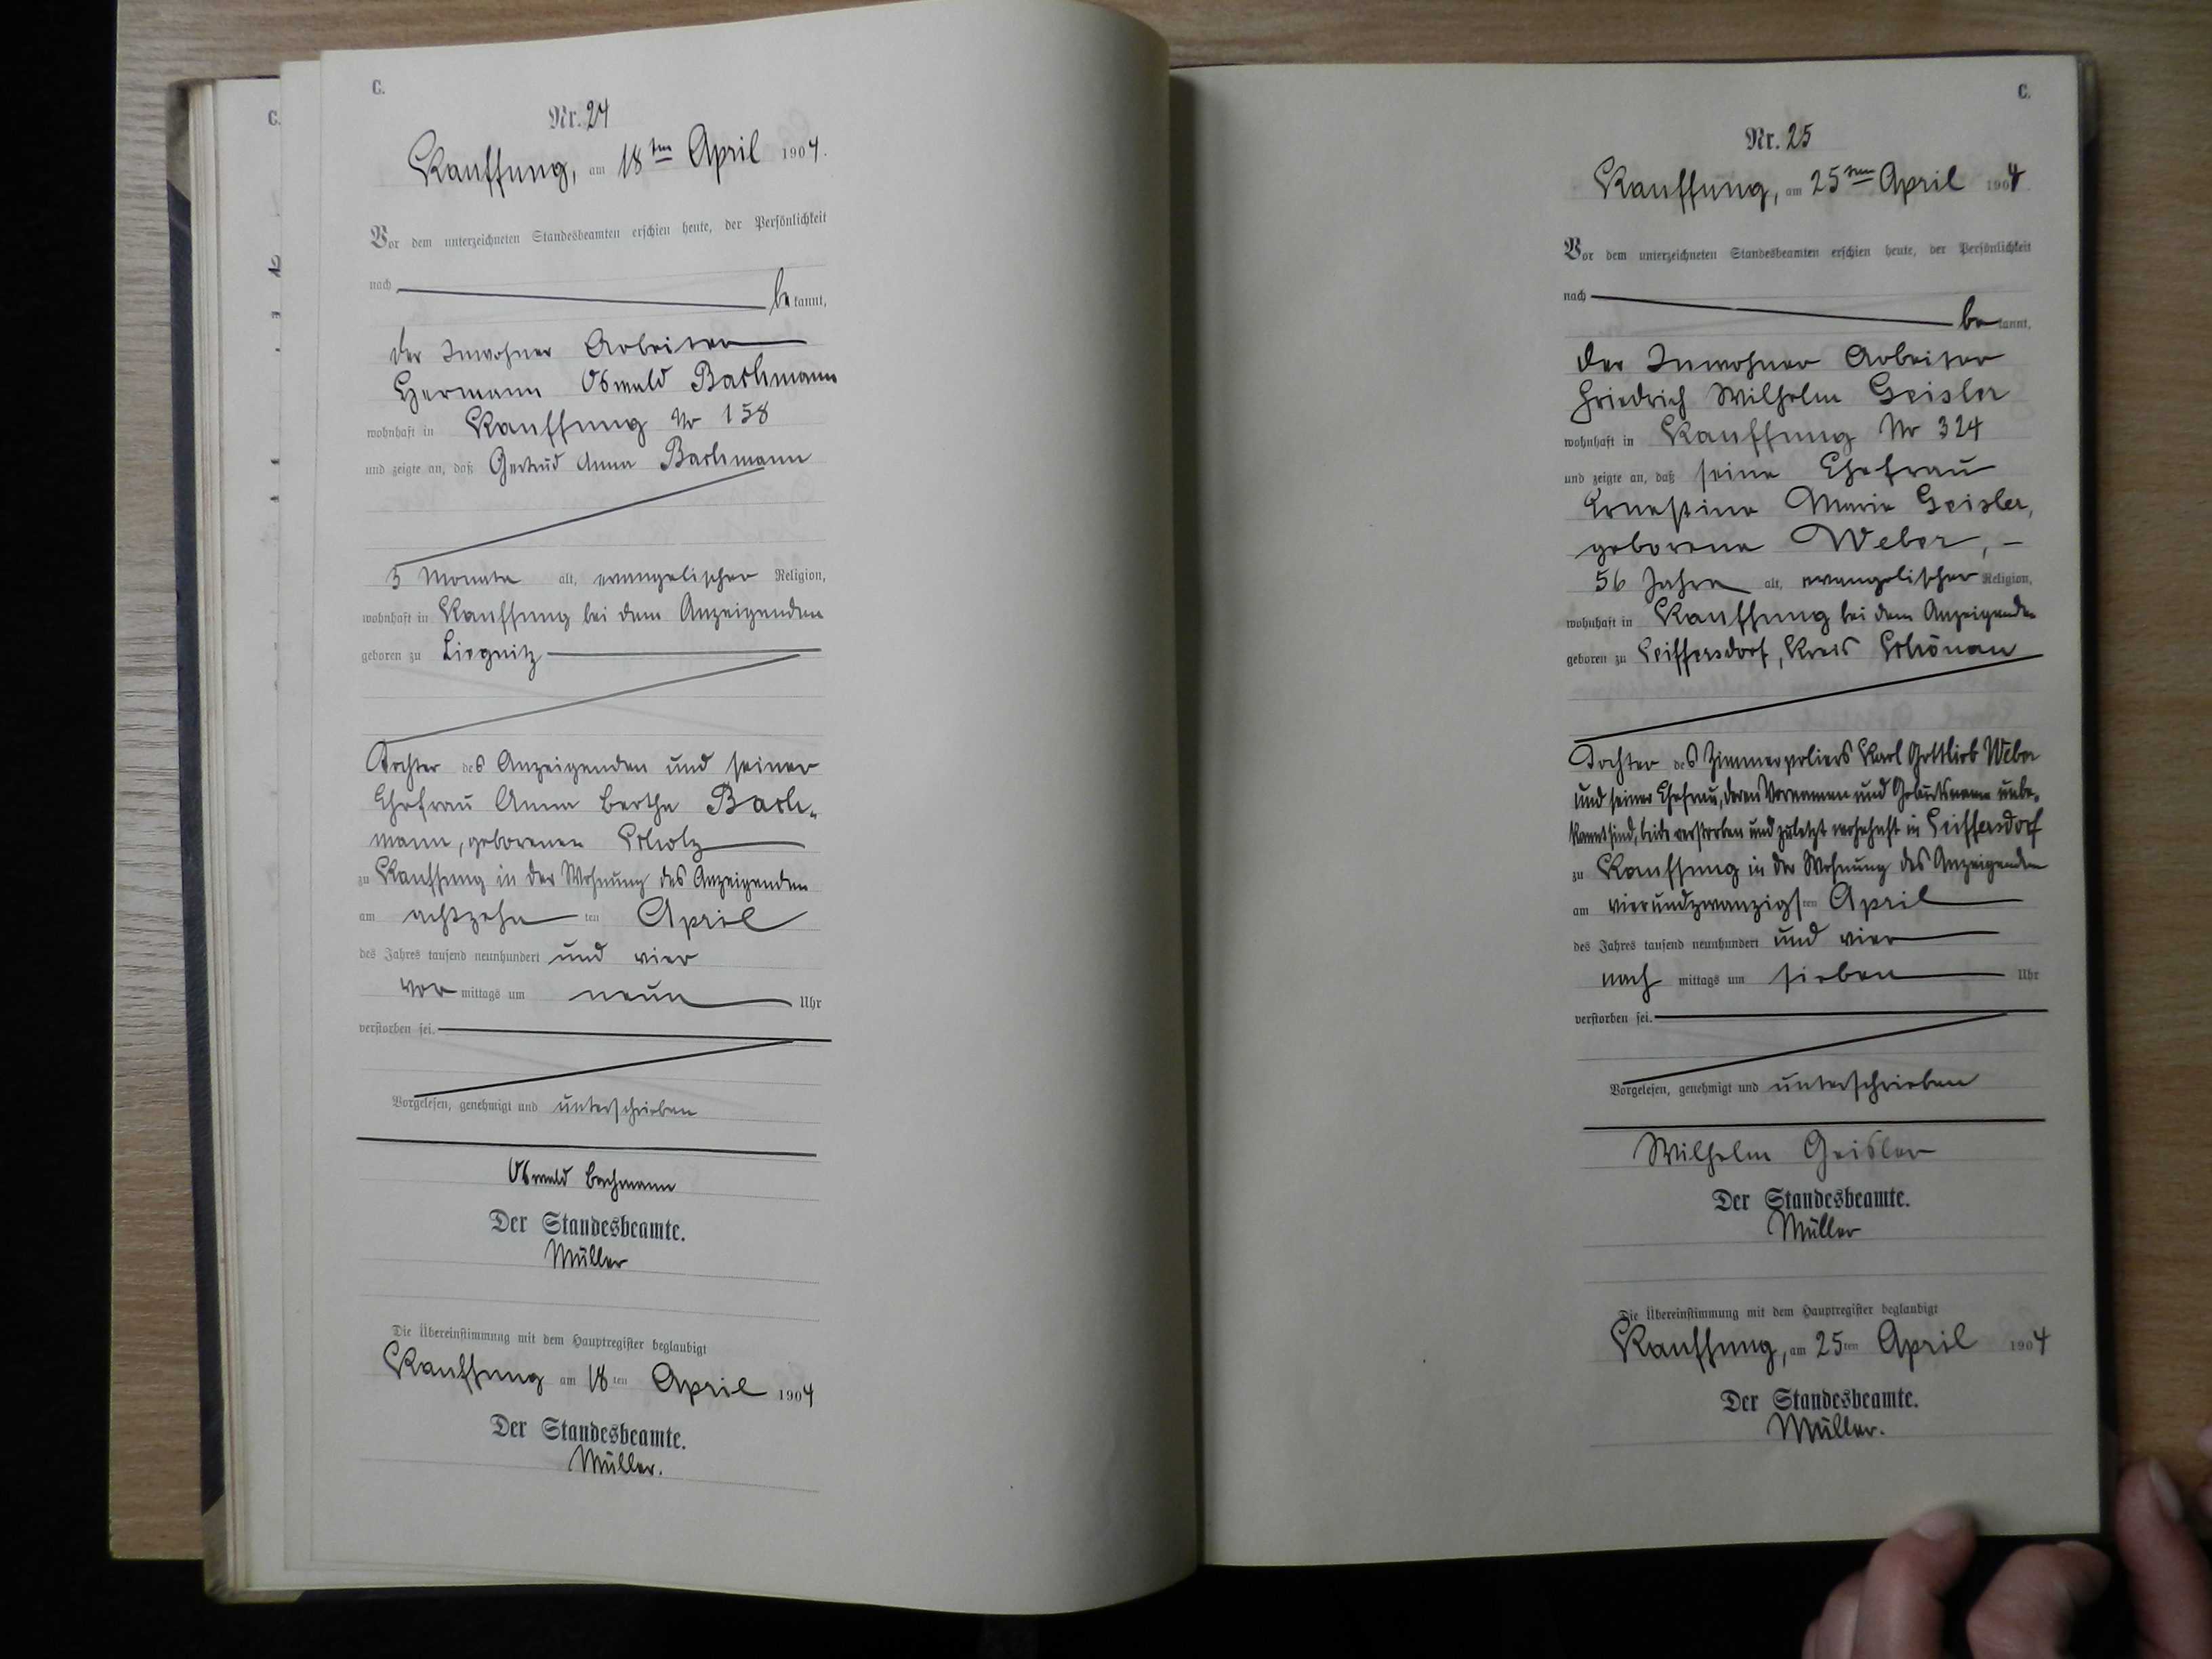 C.
Nr. 24
Kauffung, am 18ten April 1904.
Vor dem unterzeichneten Standesbeamten erschien heute, der Persönlichkeit
nach be kannt,
der Inwohner Arbeiter
Hermann Oswald Bachmann
wohnhaft in Kauffung Nr 158
und zeigte an, daß Gertrud Anna Bachmann
3 Monate alt, evangelischer Religion,
wohnhaft in Kauffung bei dem Anzeigenden
geboren zu Liegnitz
Tochter des Anzeigenden und seiner
Ehefrau Anna Bertha Bach-
mann, geborenen Scholz
zu Kauffung in der Wohnung des Anzeigenden
am achtzehn ten April
des Jahres tausend neunhundert und vier
vor mittags um neun Uhr
verstorben sei.
Vorgelesen, genehmigt und unterschrieben
Oswald Bachmann
Der Standesbeamte.
Müller
Die Übereinstimmung mit dem Hauptregister beglaubigt
Kauffung am 18ten April 1904
Der Standesbeamte.
Müller.
C.
Nr. 25
Kauffung, am 25ten April 1904.
Vor dem unterzeichneten Standesbeamten erschien heute, der Persönlichkeit
nach be kannt,
der Inwohner Arbeiter
Friedrich Wilhelm Geisler
wohnhaft in Kauffung Nr 324
und zeigte an, daß seine Ehefrau
Ernestine Marie Geisler,
geborene Weber, –
56 Jahre alt, evangelischer Religion,
wohnhaft in Kauffung bei dem Anzeigenden
geboren zu Seiffersdorf, Kreis Schönau
Tochter des Zimmerpoliers Karl Gottlieb Weber
und seiner Ehefrau, deren Vornamen und Geburtsname unbe-
kannt sind, beide verstorben und zuletzt wohnhaft in Seiffersdorf
zu Kauffung in der Wohnung des Anzeigenden
am vierundzwanzigsten April
des Jahres tausend neunhundert und vier
nach mittags um sieben Uhr
verstorben sei.
Vorgelesen, genehmigt und unterschrieben
Wilhelm Geisler
Der Standesbeamte.
Müller
Die Übereinstimmung mit dem Hauptregister beglaubigt
Kauffung, am 25ten April 1904
Der Standesbeamte.
Müller.